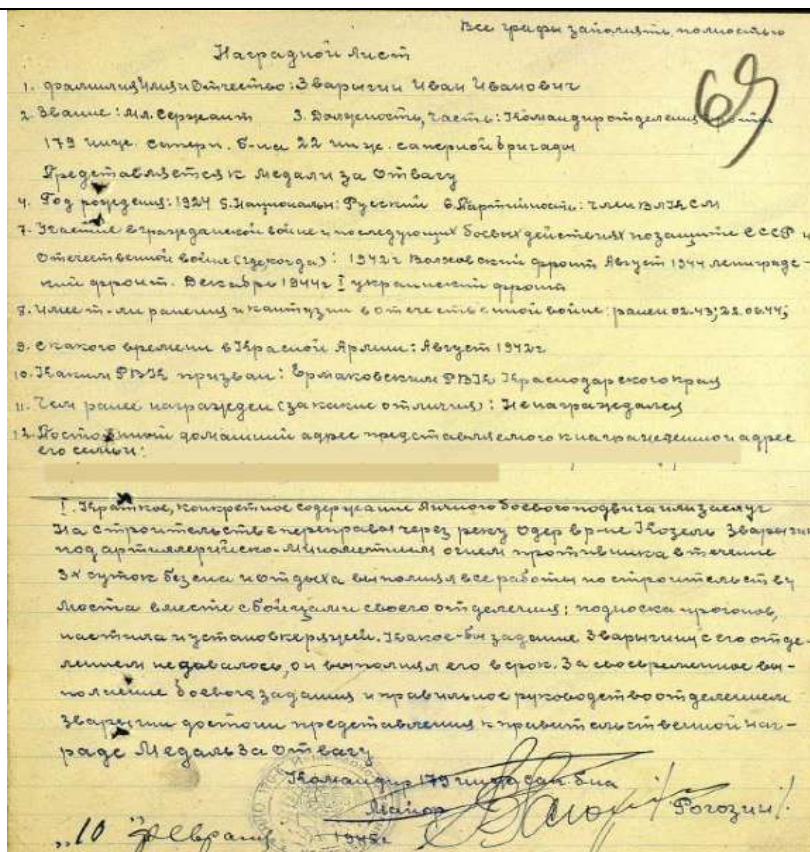 Все графы заполнять полностью
Наградной лист
69
1. Фамилия Имя и Отчество: Зварыгин Иван Иванович
2. Звание: Мл. Сержант 3. Должность, часть: Командир отделения роты
179 инже. саперн. б-на 22 инже. саперной бригады
Представляется к медали за Отвагу
4. Год рождения: 1924 5. Национальн: Русский 6. Партийность: член ВЛКСМ
7. Участие в гражданской войне и последующих боевых действиях по защите СССР и
отечественной войне (где, когда): 1942г Волховский фронт Август 1944 ленинградс-
кий фронт. Декабрь 1944г I украинский фронт
8. Имеет-ли ранения и контузии в отечественной войне: ранен 02.43; 22.06.44;
9. С какого времени в Красной Армии: Август 1942г
10. Каким РВК призван: Ермаковским РВК Краснодарского края
11. Чем ранее награжден (за какие отличия): Не награждался
12. Постоянный домашний адрес представляемого к награждению и адрес
его семьи:
I. Краткое, конкретное содержание личного боевого подвига или заслуг
На строительстве переправы через реку Одер в р-не Козель Зварыгин
под артиллерийско-минометным огнем противника в течение
3х суток без сна и отдыха выполнял все работы по строительству
моста вместе с бойцами своего отделения: подноска прогонов,
настила и установке ряжей. Какое-бы задание Зварыгину с его отде-
лением не давалось, он выполнял его в срок. За своевременное вы-
полнение боевого задания и правильное руководство отделением
Зварыгин достоин представления к правительственной наг-
раде Медаль За Отвагу
Командир 179 инже. сап. б-на
Майор / Рогозин /.
"10" февраля 1945г